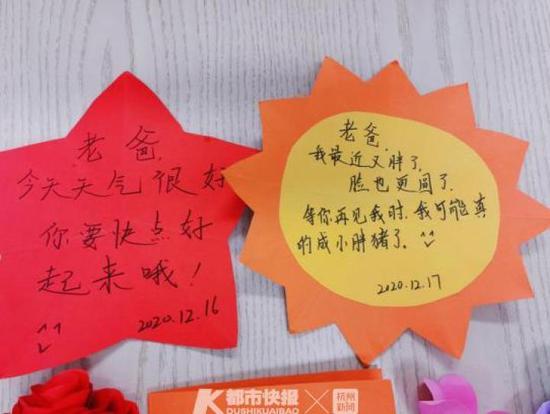 老爸，
今天天气很好
你要快点好
起来哦！
2020.12.16
老爸，
我最近又胖了，
脸也更圆了，
等你再见我时，我可能真
的成小胖猪了。
2020.12.17
都市快报
DUSHIKUAIBAO
杭州
新闻